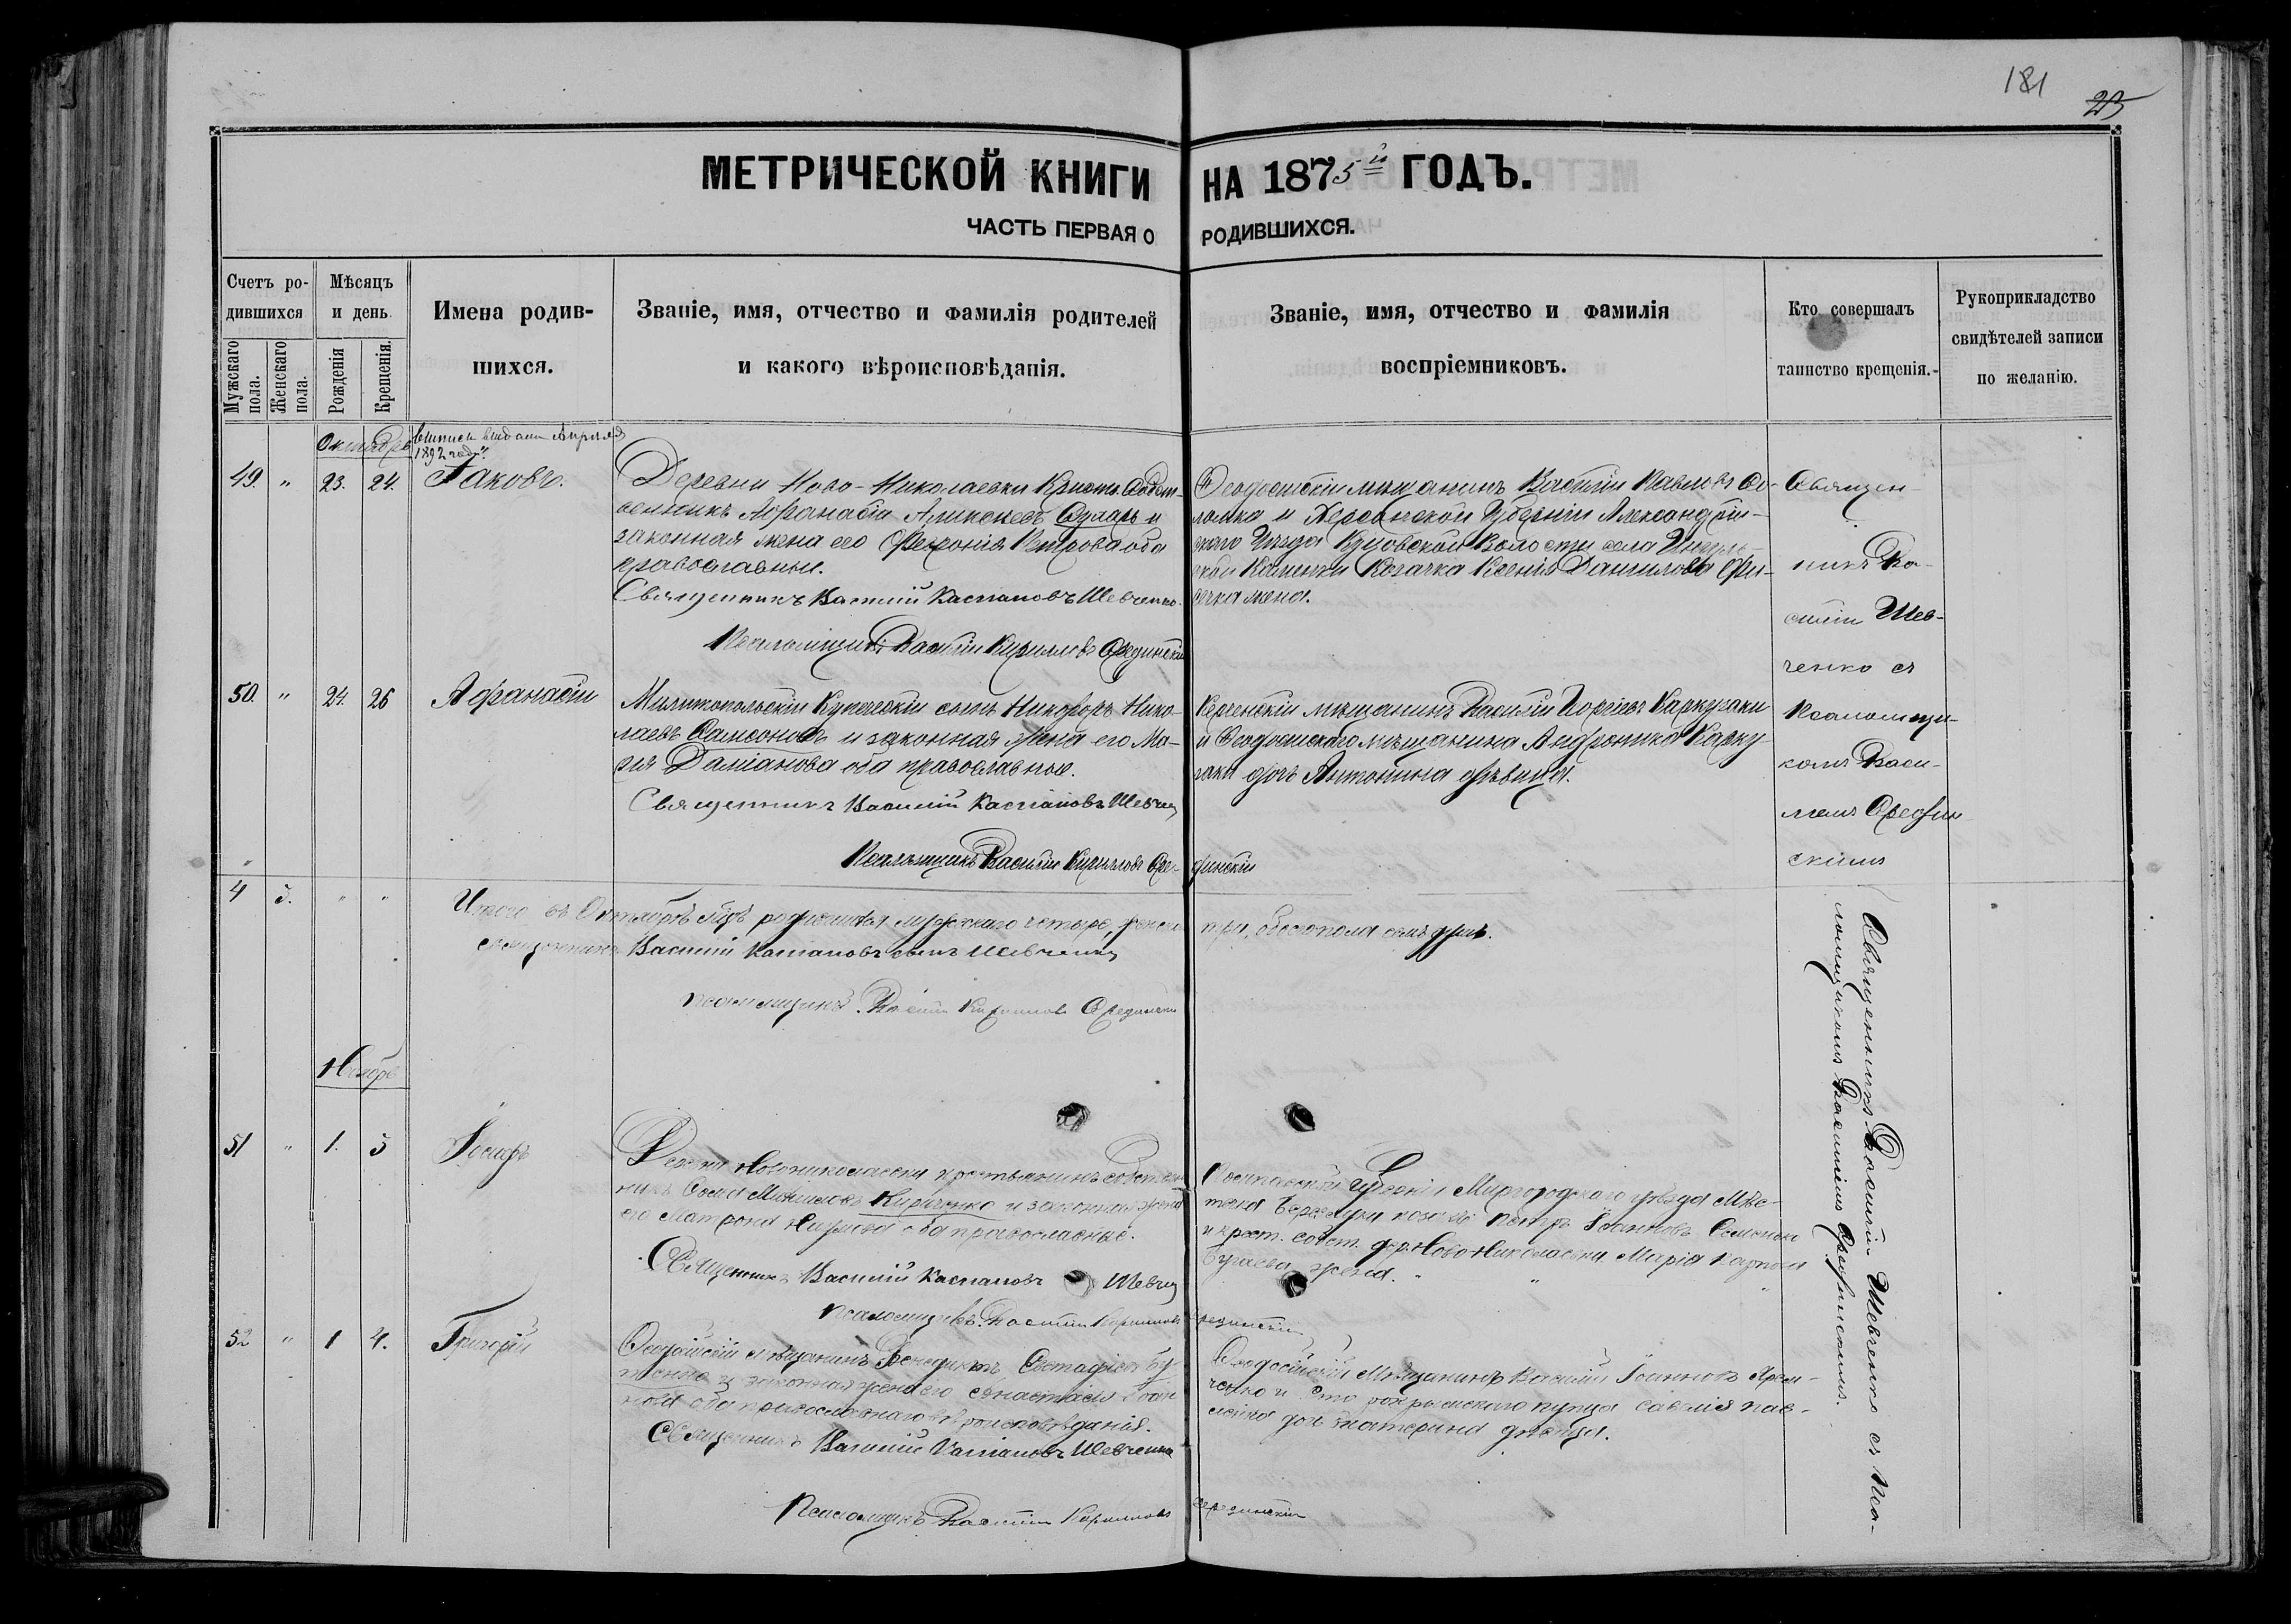 181
23
МЕТРИЧЕСКОЙ КНИГИ НА 1875й ГОДЪ.
ЧАСТЬ ПЕРВАЯ О РОДИВШИХСЯ.
Счетъ родившихся
Мужскаго пола.
Женскаго пола.
Мѣсяцъ и день
Рожденія
Крещенія.
Имена родив-
шихся.
Званіе, имя, отчество и фамилія родителей
и какого вѣроисповѣданія.
Званіе, имя, отчество и фамилія
воспріемниковъ.
Кто совершалъ
таинство крещенія.
Рукоприкладство
свидѣтелей записи
по желанію.
Октябрь
Апреля
1892 года
49. " 23. 24. Іаковъ.
Деревни Ново-Николаевки Крест. Собст-
венникъ Афанасій Алексеевъ и
законная жена его Феврония Петрова оба
православные.
Священникъ Василій Кассіановъ Шевченко.
Псаломщикъ Василій Кириловъ Срединскій
Феодосійскій мѣщанинъ Василій Павловъ
и Херсонской Губерніи Александрій-
скаго Уѣзда Волости села Ингуль-
ской Каменки Козачка Ксенія Данилова
жена.
Священ-
никъ Ва-
силій Шев-
ченко съ
Псаломщи-
комъ Васи-
лемъ Средин-
скимъ
50. " 24. 26 Афанасій
Мелитопольскій Купеческій сынъ Никифоръ Нико-
лаевъ Самсоновъ и законная жена его Ма-
рія Даміанова оба православные.
Священникъ Василій Кассіановъ Шевченко
Псаломщикъ Василій Кириловъ Срединскій
Керченскій мѣщанинъ Василій Георгіевъ
и Феодосійскаго мѣщанина Андроника
дочь Антонина дѣвица.
4 3. " "
Итого въ Октябрѣ мцѣ родившихся мужскаго четыре, женскаго три, обоего пола семь душъ.
Священникъ Василій Кассіановъ сынъ Шевченко
Псаломщикъ Василій Кириловъ Срединскій
Ноябрь
51 " 1. 3 Іосифъ
Деревни Новониколаевки крестьянинъ собствен-
никъ Кириченко и законная жена
его Матрона оба православные.
Священникъ Василій Кассіановъ Шевченко
Псаломщикъ Василій Кириловъ Срединскій
Полтавской Губерніи Миргородскаго уѣзда Мѣс-
течка козакъ Петръ Іоанновъ
и крест. собст. дер. Ново Николаевки Марія Карпова
жена.
52 " 1 4. Григорій
Феодосійскій мѣщанинъ Бенедиктъ Евстафіевъ
и законная жена его Анастасія Іоан-
нова оба православнаго вѣроисповѣданія.
Священникъ Василій Кассіановъ Шевченко
Псаломщикъ Василій Кириловъ Срединскій
Феодосійскій Мѣщанинъ Василій Іоанновъ Ярем-
ченко и Старокрымскаго купца Савелія Пав-
дочь Екатерина дѣвица.
Священникъ Василій Шевченко съ Пса-
ломщикомъ Василіемъ Срединскимъ.